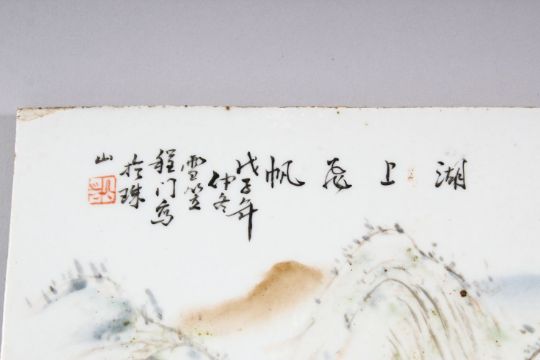 湖上飛帆
戊子年
仲冬
雪笠
程门寫
於珠
山